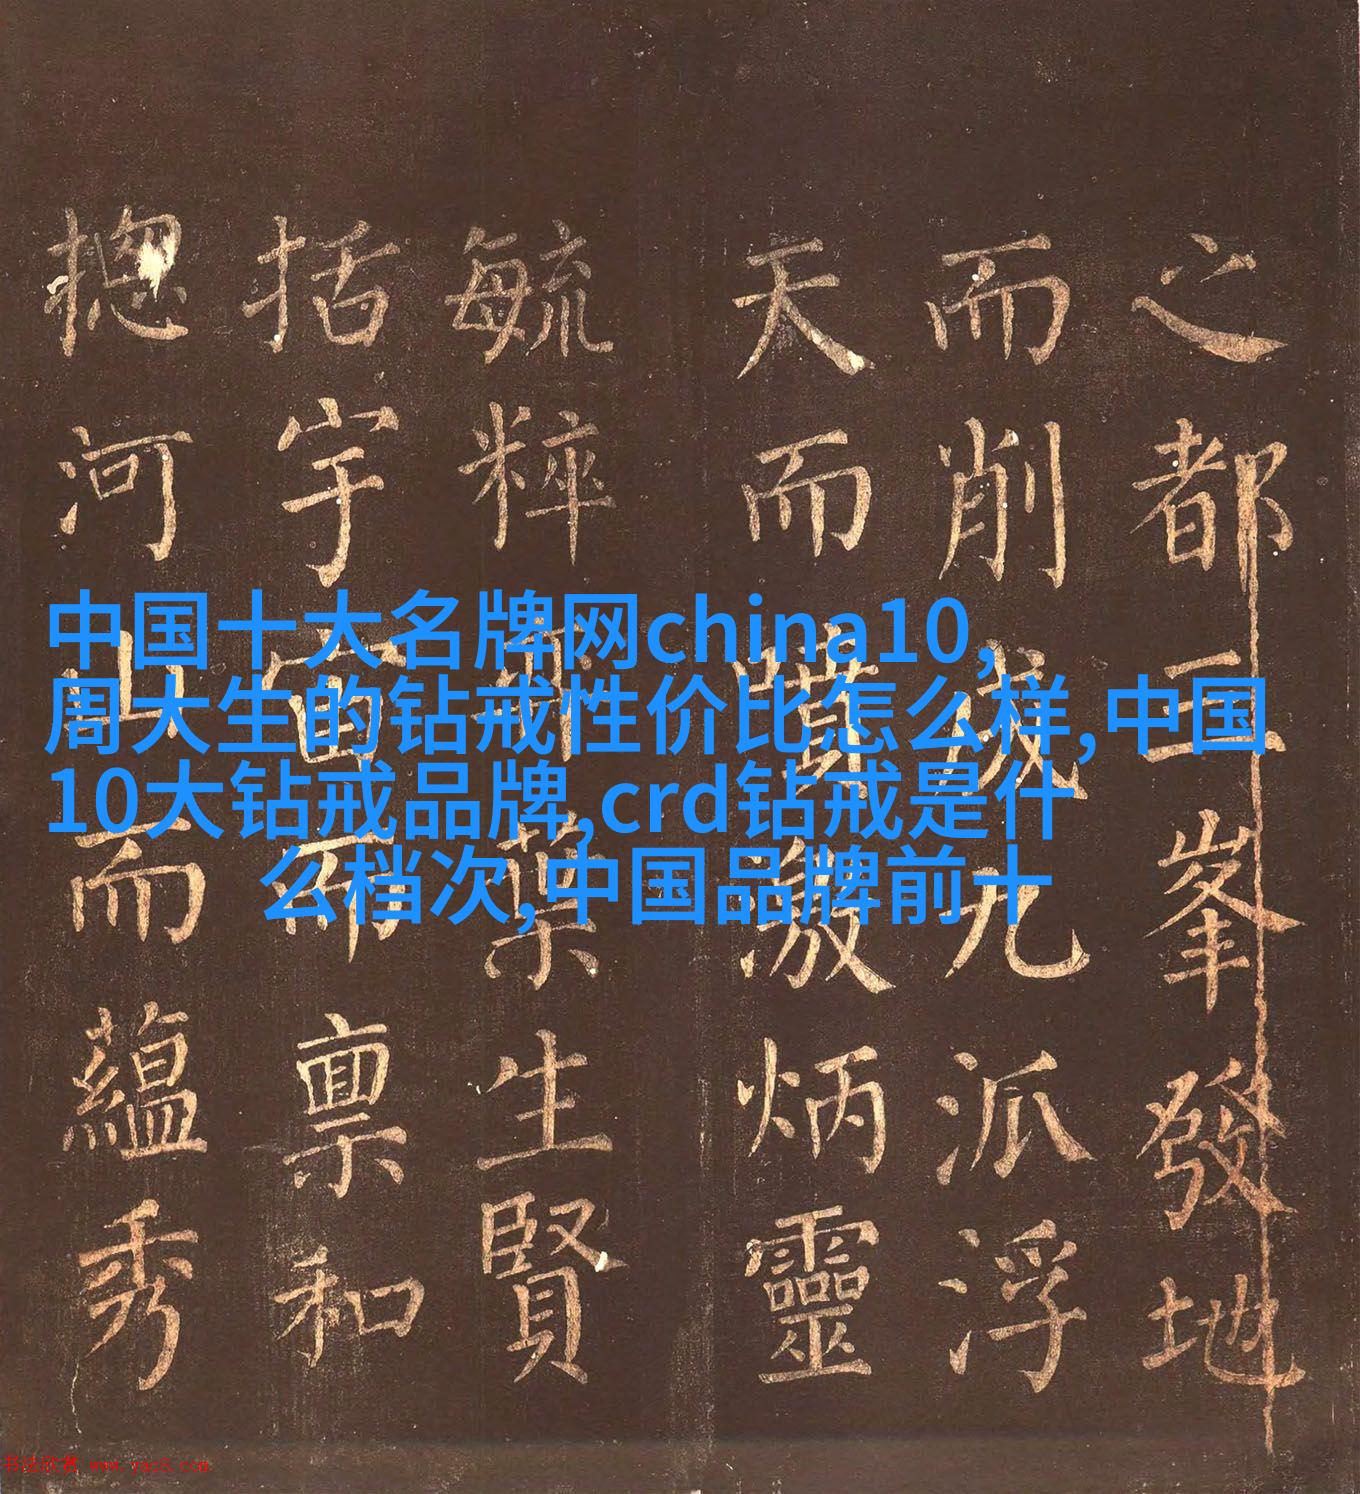 中国十大名牌网china10,
周大生的钻戒性价比怎么样,中国
10大钻戒品牌,crd钻戒是什
么档次,中国品牌前十
之都三峯發地
而削成九派浮
天而噴激炳靈
毓粹所莫生賢
括宇宙而禀和
揔河山而蘊秀
书法欣赏 www.yac8.com